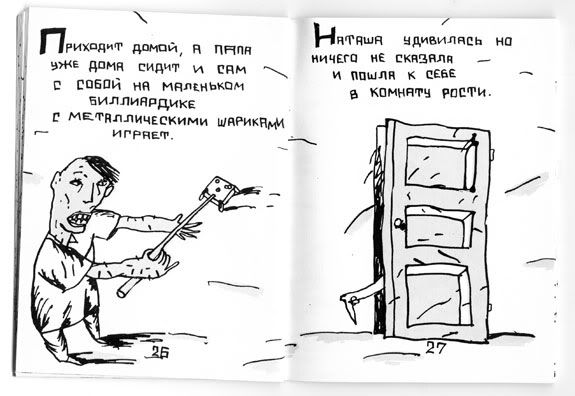 Приходит домой, а папа
уже дома сидит и сам
с собой на маленьком
биллиардике
с металлическими шариками
играет.
26
Наташа удивилась но
ничего не сказала
и пошла к себе
в комнату рости.
27